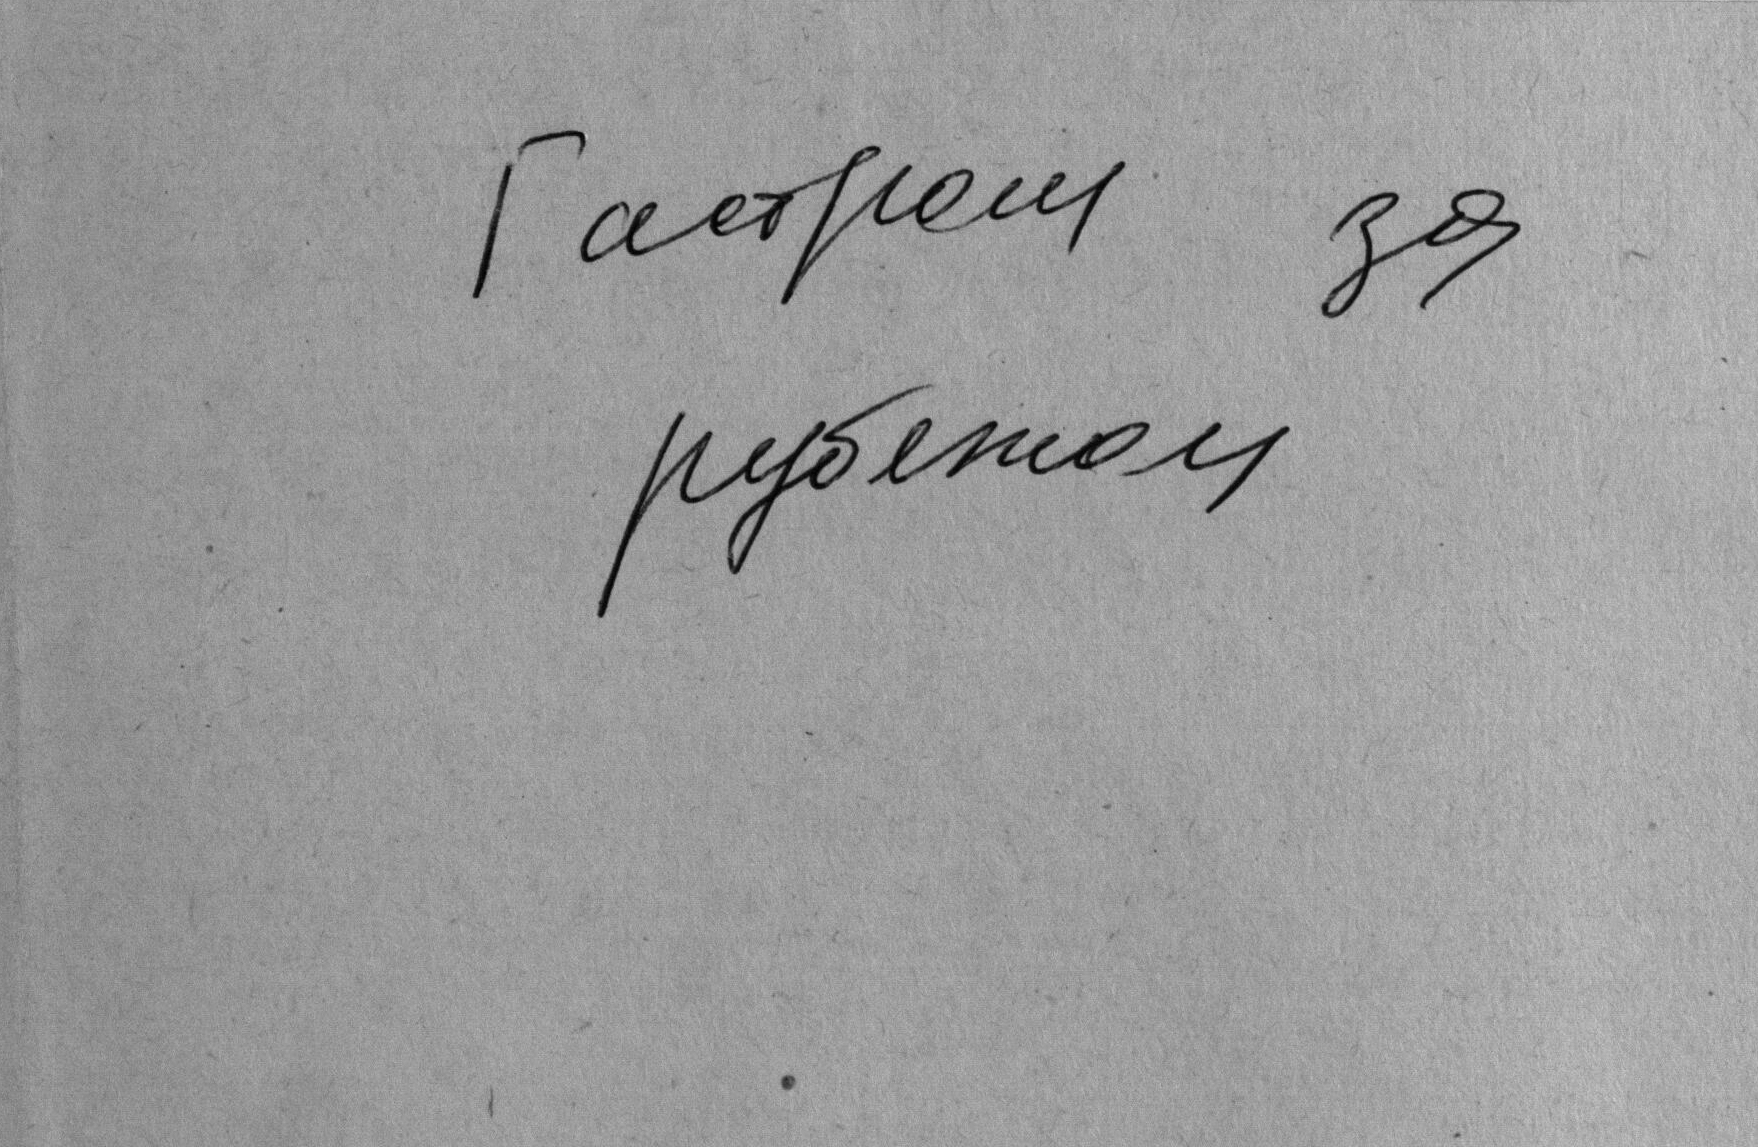 Гастроли за
рубежом